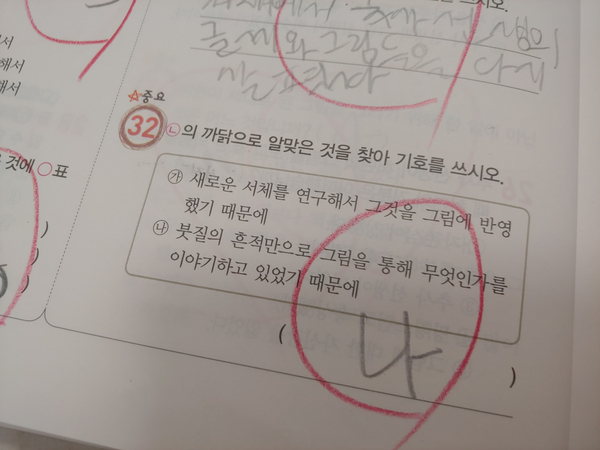 쓰시오.
글씨와 그림 다시
서
해서
해서
☆중요
32 ㉡의 까닭으로 알맞은 것을 찾아 기호를 쓰시오.
것에 ○표
㉮ 새로운 서체를 연구해서 그것을 그림에 반영
했기 때문에
㉯ 붓질의 흔적만으로 그림을 통해 무엇인가를
이야기하고 있었기 때문에
( 나 )